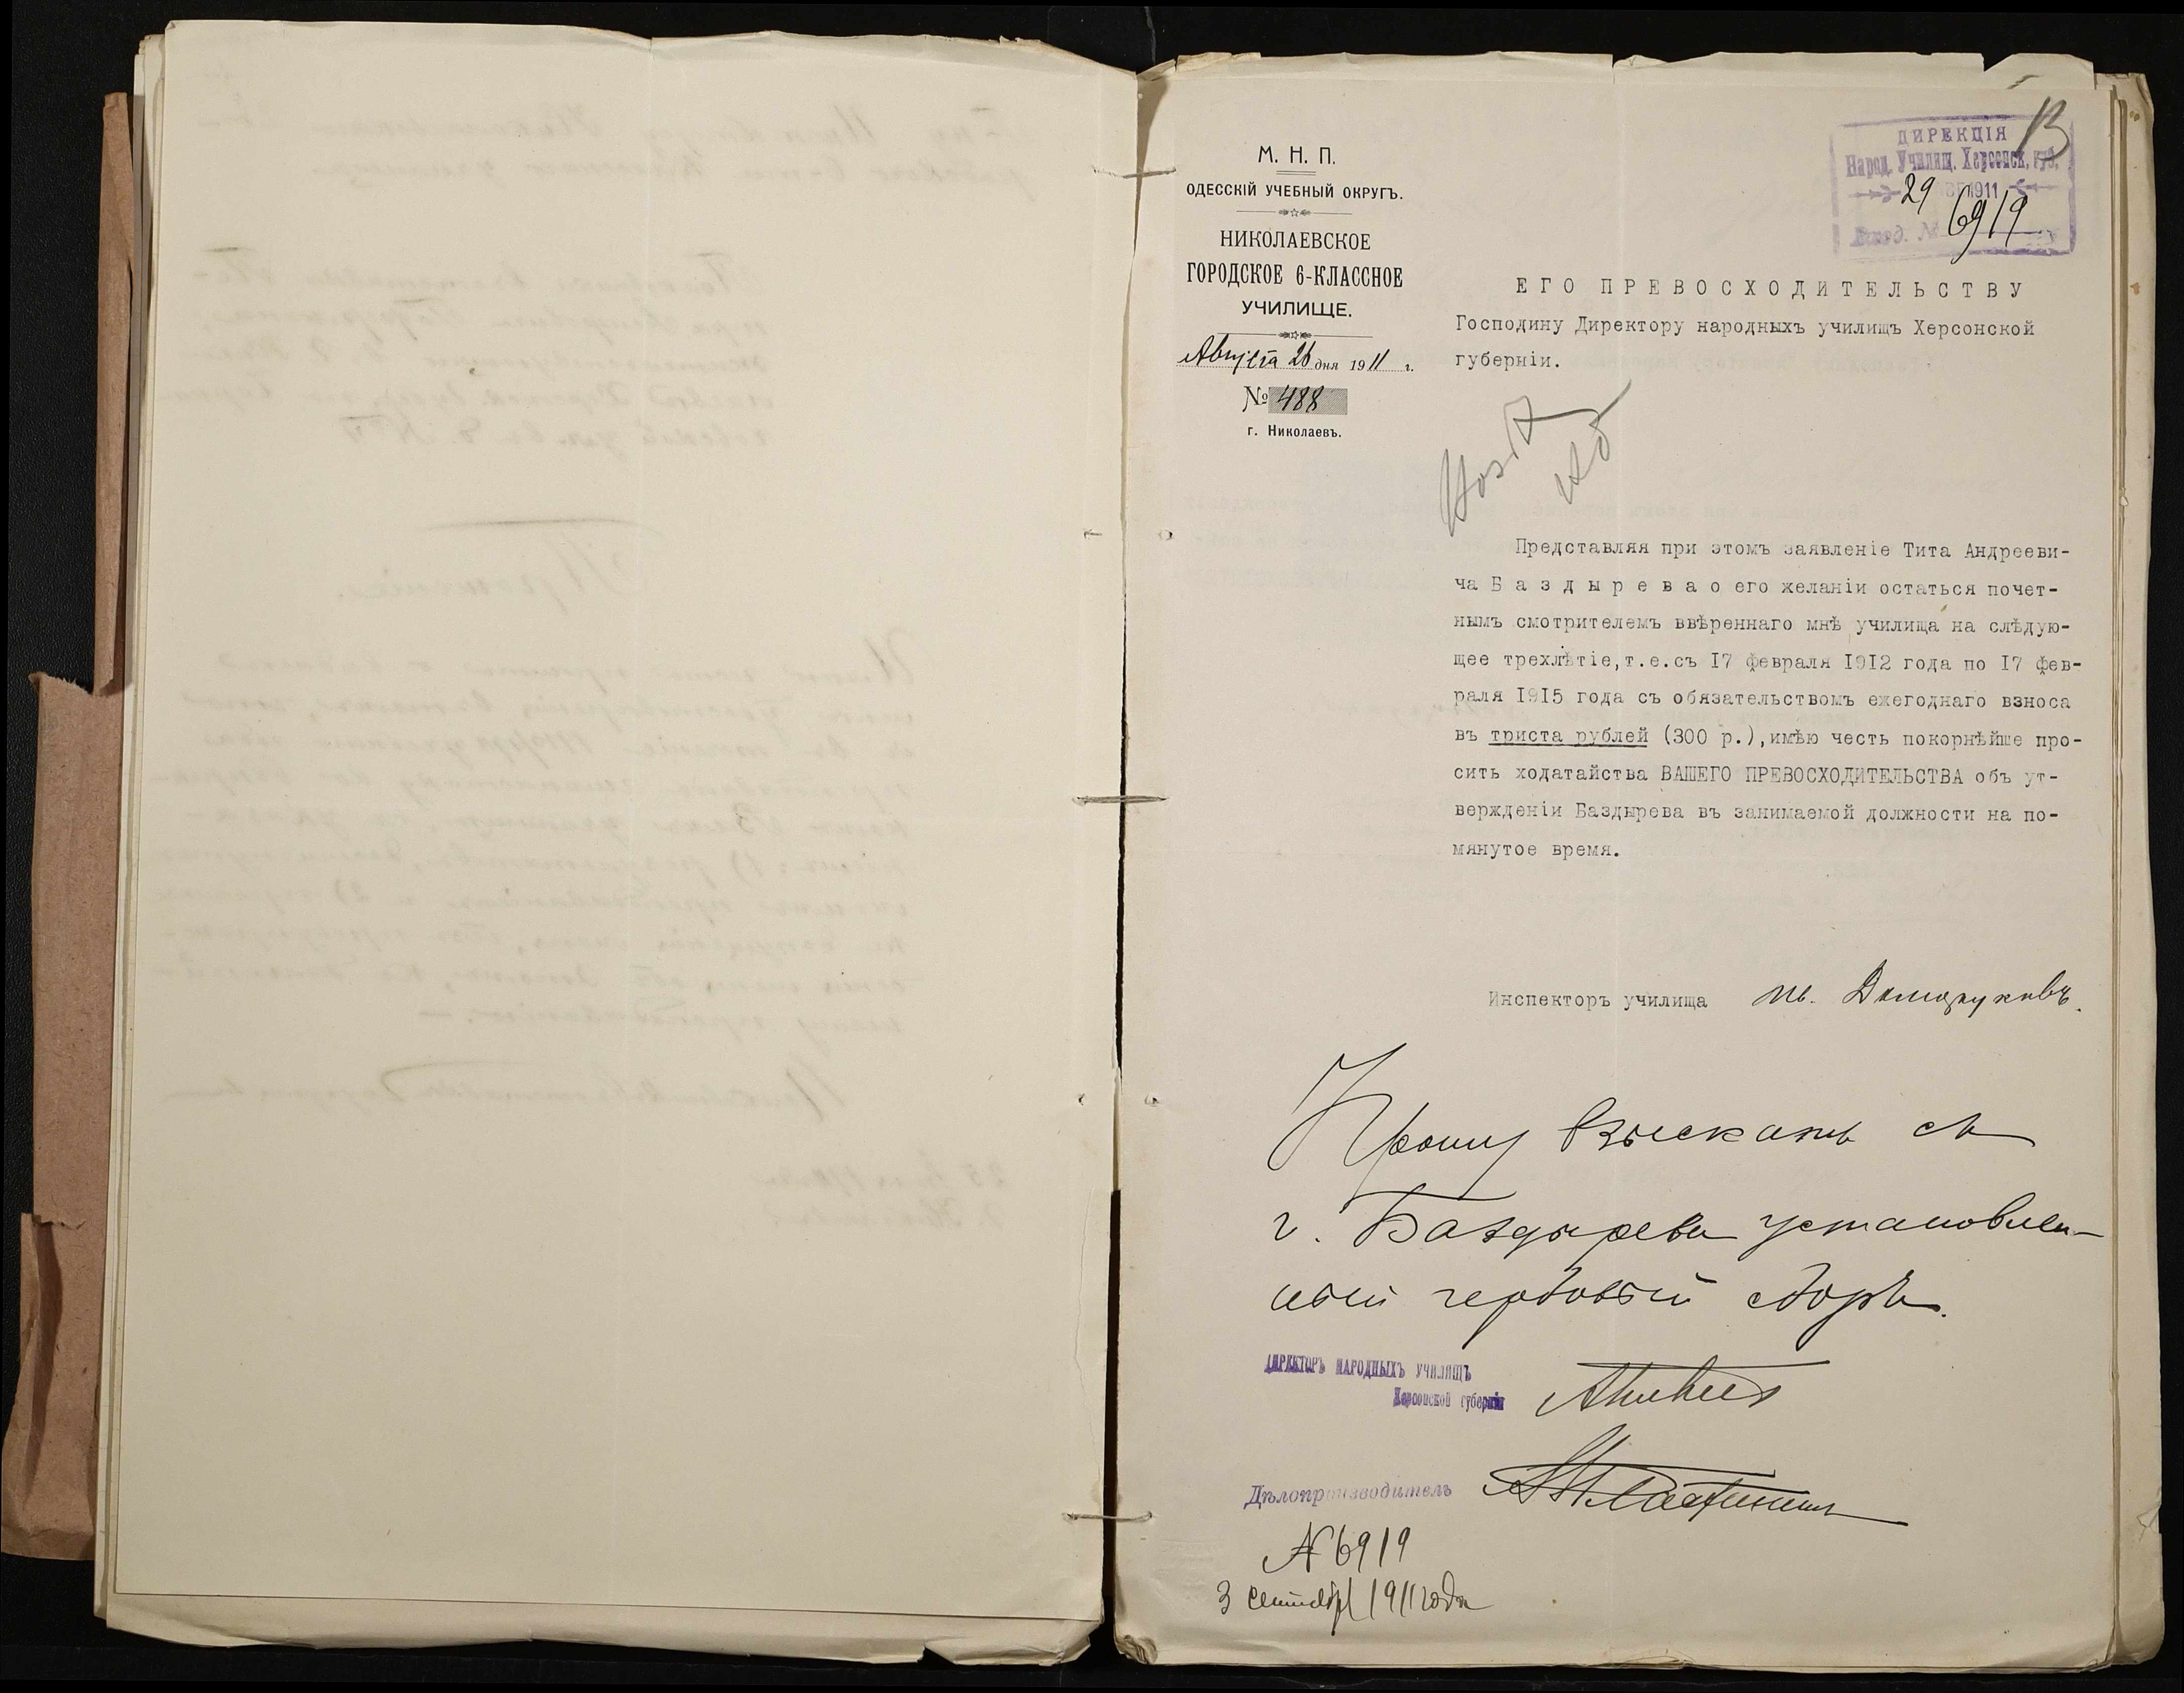 ДИРЕКЦІЯ
Народ. Училищ. Херсонск. губ.
29 1911
Вход. № 6919
М. Н. П.
ОДЕССКІЙ УЧЕБНЫЙ ОКРУГЪ.
НИКОЛАЕВСКОЕ
ГОРОДСКОЕ 6-КЛАССНОЕ
УЧИЛИЩЕ.
Августа 26 дня 1911 г.
№ 488
г. Николаевъ.
ЕГО ПРЕВОСХОДИТЕЛЬСТВУ
Господину Директору народныхъ училищъ Херсонской
губерніи.
Представляя при этомъ заявленіе Тита Андрееви-
ча Баздырева о его желаніи остаться почет-
нымъ смотрителемъ ввѣреннаго мнѣ училища на слѣдую-
щее трехлѣтіе, т.е. съ 17 февраля 1912 года по 17 фев-
раля 1915 года съ обязательствомъ ежегоднаго взноса
въ триста рублей (300 р.), имѣю честь покорнѣйше про-
сить ходатайства ВАШЕГО ПРЕВОСХОДИТЕЛЬСТВА объ ут-
вержденіи Баздырева въ занимаемой должности на по-
мянутое время.
Инспекторъ училища
Прошу взыскать съ
г. Баздырева установлен-
ный гербовый сборъ.
ДИРЕКТОРЪ НАРОДНЫХЪ УЧИЛИЩЪ
Херсонской губерніи
Дѣлопроизводитель
№ 6919
3 сентября 1911 года